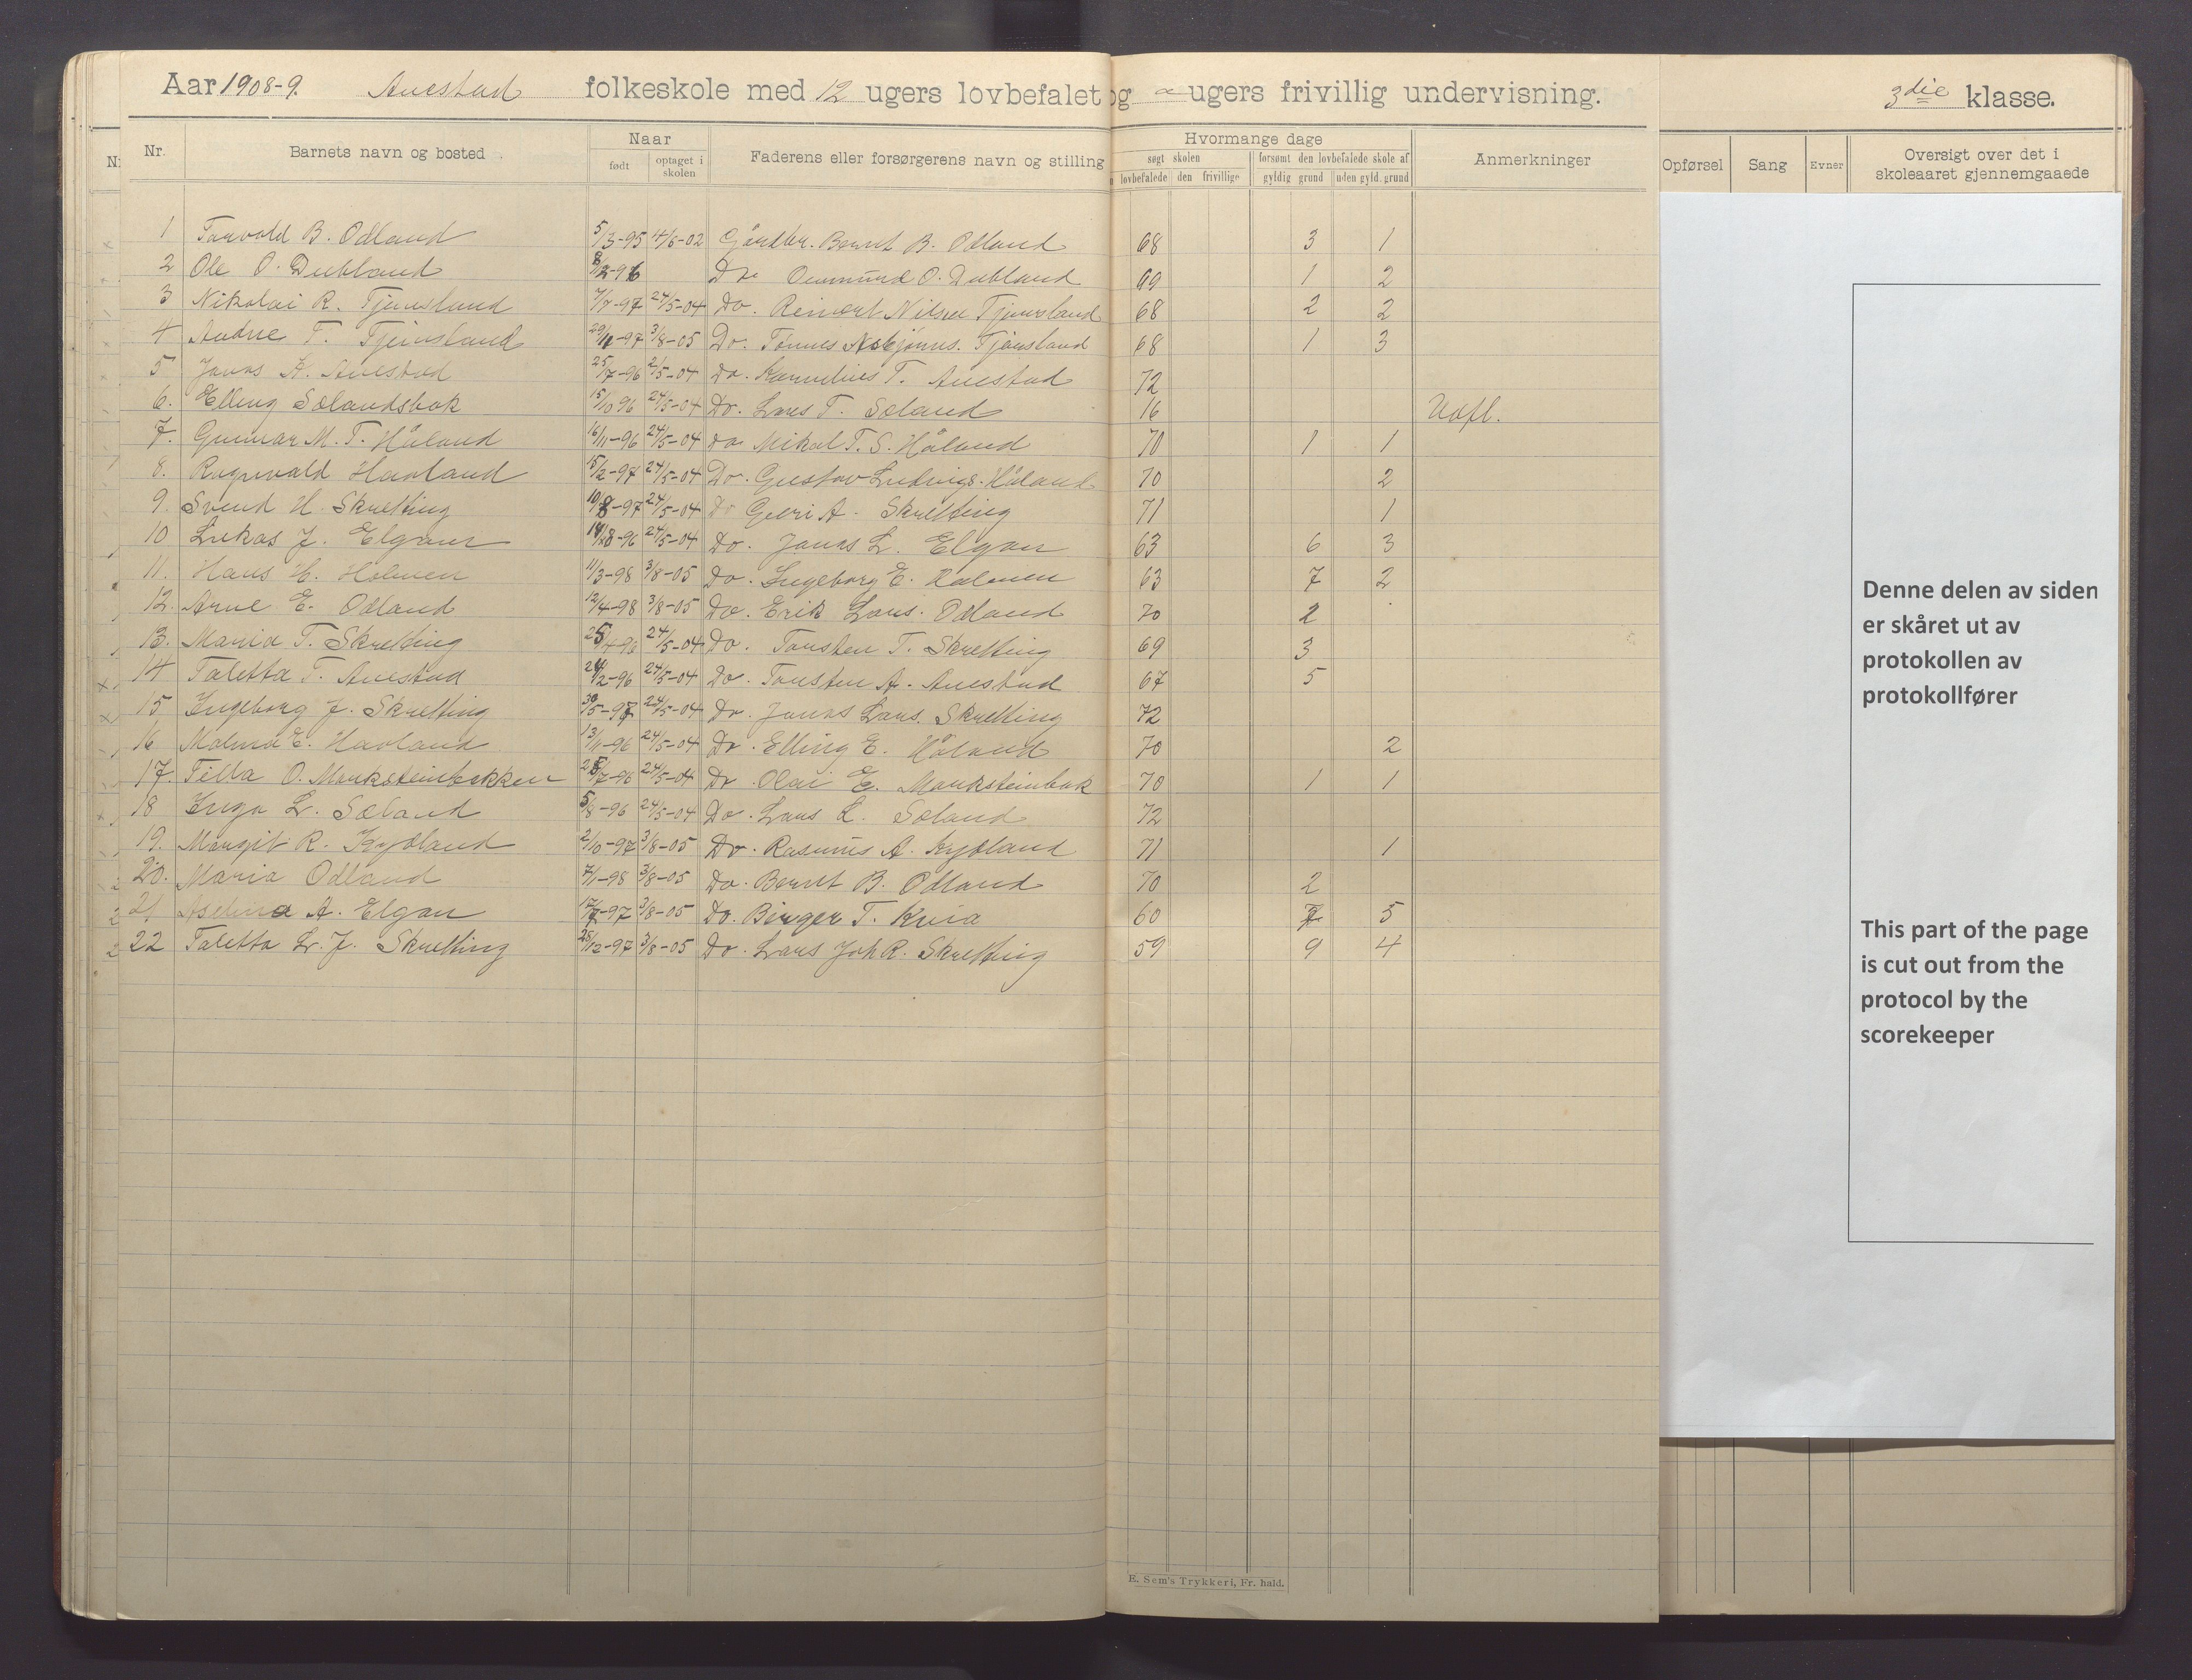 Aar 1908-9. Auestad folkeskole med 12 ugers lovbefalet og ugers frivillig undervisning. 3die klasse.
Nr. Barnets navn og bosted Naar født optaget i skolen Faderens eller forsørgerens navn og stilling Hvormange dage søgt skolen lovbefalede den frivillige forsømt den lovbefalede skole af gyldig grund uden gyld. grund Anmerkninger Opførsel Sang Evner Oversigt over det i skoleaaret gjennemgaaede
1 Torvald B. Odland 5/3-95 4/6-02 Gårdbr. Bernt B. Odland 68 3 1
2 Ole O. Dubland Do O. Dubland 69 1 2
3 Nikolai R. Tjensland 7/7-97 24/5-04 Do. Reinert Nilsen Tjensland 68 2 2
4 Andre T. Tjensland 3/8-05 Do. Tønnes Asbjørns. Tjensland 68 1 3
5 Jonas K. Auestad 25/7-96 2/5-04 Do. Kornelius T. Auestad 72
6. Elling Sælandsbak 15/10 96 24/5-04 Do. Lars T. Sæland 16 Udfl.
7. Gunnar M. T. Håland 16/11-96 24/5-04 Do Mikal T. S. Håland 70 1 1
8. Ragnvald Haaland 15/2-97 24/5-04 Do. Gustav Ludvigs. Håland 70 2
9. Svend H. Skretting 24/5-04 Do Geeri A. Skretting 71 1
10 Lukas J. Elgan 24/5-04 Do. Jonas L. Elgan 63 6 3
11. Hans H. Holmen 11/3-98 3/8-05 Do. Ingeborg E. Holmen 63 7 2
12. Arne E. Odland 12/4-98 3/8-05 Do. Erik Lars. Odland 70 2
13. Maria T. Skretting 24/5-04 Do. Torsten T. Skretting 69 3
14 Taletta T. Auestad 24/5-04 Do. Torsten A. Auestad 67 5
15 Ingeborg J. Skretting 30/5-97 24/5-04 Do. Jonas Lars. Skretting 72
16 Malena E. Haaland 13/11-96 24/5-04 Do. Elling E. Håland 70 2
17. Tilla O. Marksteinbakken 24/5-04 Do Olai E. Marksteinbak 70 1 1
18 Inga L. Sæland 5/8-96 24/5-04 Do. Lars L. Sæland 72
19. Margit R. Kydland 2/10-97 3/8-05 Do. Rasmus A. Kydland 71 1
20. Maria Odland 7/1-98 3/8-05 Do. Bernt B. Odland 70 2
21 Aselina A. Elgan 3/8-05 Do. Birger T. Kvia 60 7 5
22 Taletta L. J. Skretting 28/12-97 3/8-05 Do. Lars Joh R. Skretting 59 9 4
Denne delen av siden
er skåret ut av
protokollen av
protokollfører
This part of the page
is cut out from the
protocol by the
scorekeeper
E. Sem's Trykkeri, Fr. hald.